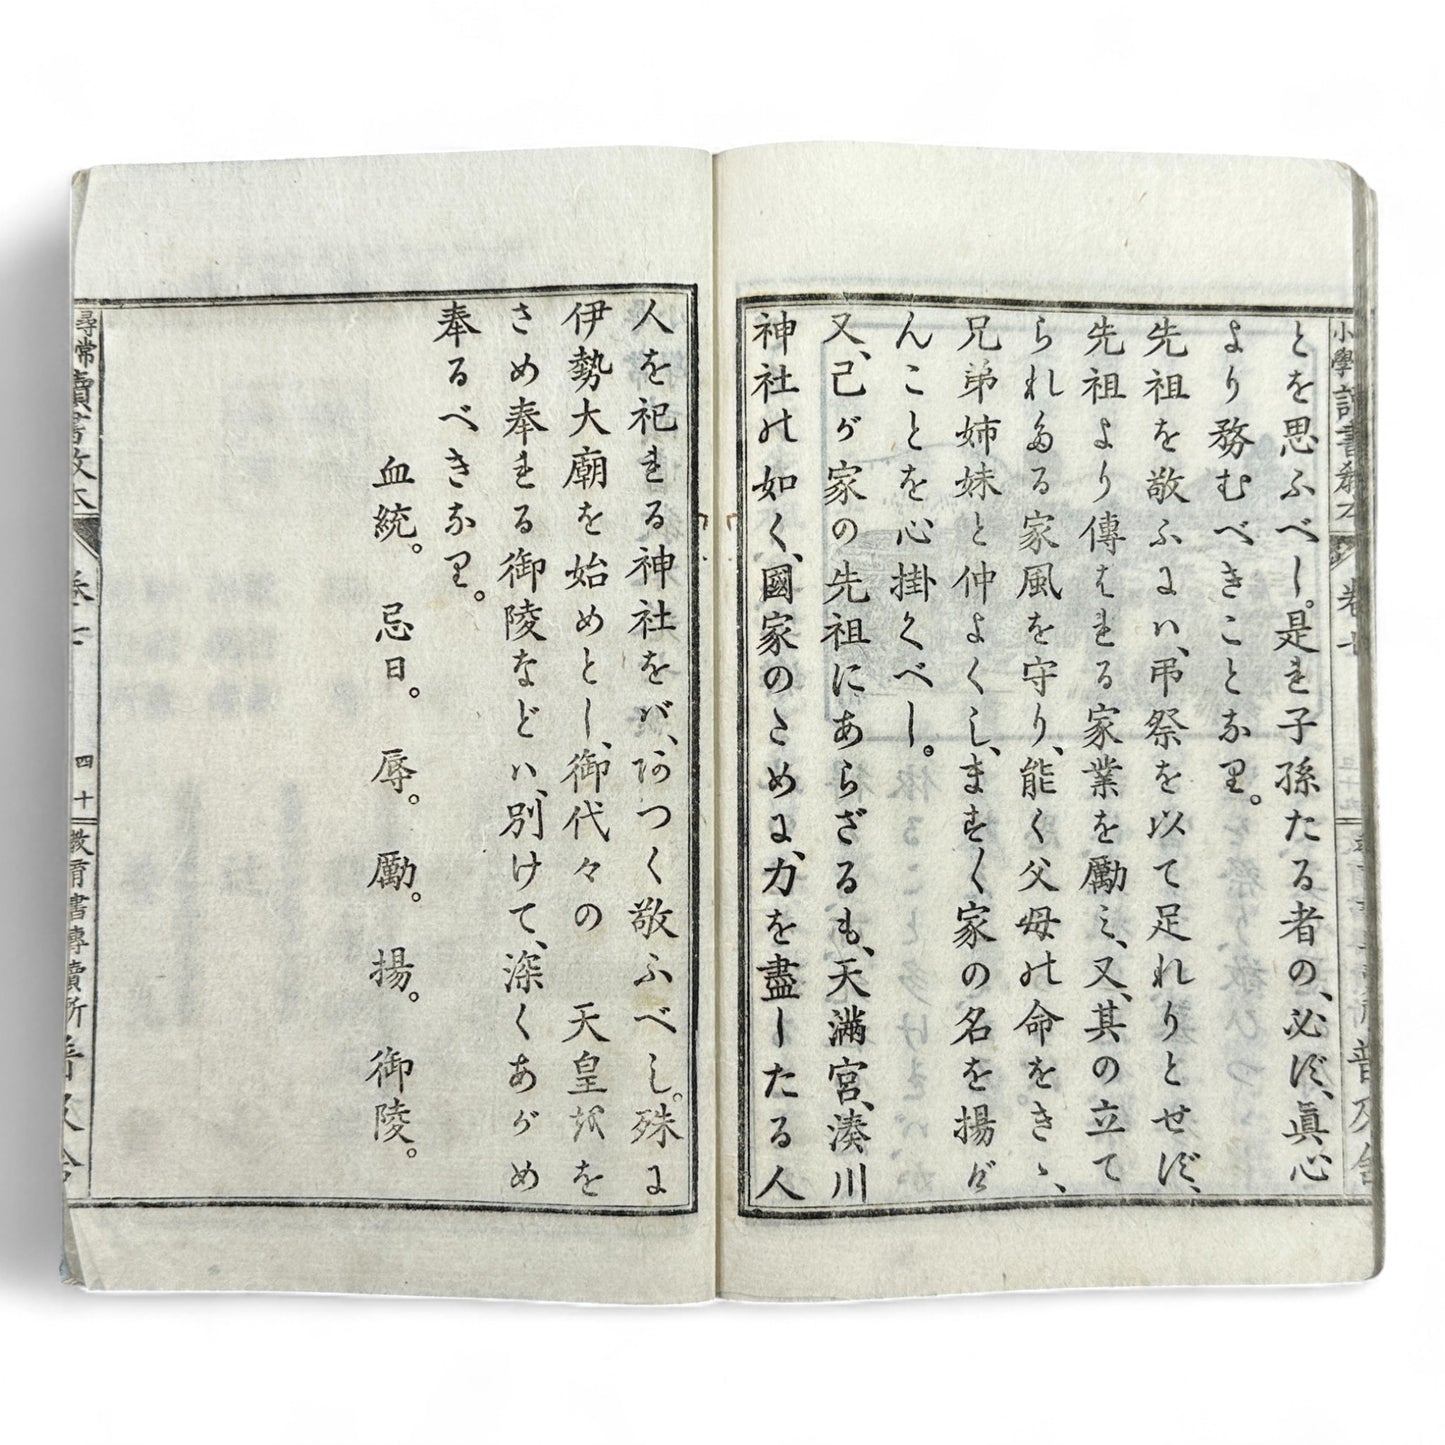 とを思ふべし。是れ子孫たる者の、必ず、眞心
より務むべきことなり。
先祖を敬ふには、弔祭を以て足れりとせず、
先祖より傳はれる家業を勵み、又、其の立て
られたる家風を守り、能く父母の命をきゝ、
兄弟姉妹と仲よくし、ますます家の名を揚げ
んことを心掛くべし。
又、己が家の先祖にあらざるも、天滿宮、湊川
神社の如く、國家のために、力を盡したる人
小學讀書教本
卷七
普及舍
人を祀れる神社をば、あつく敬ふべし。殊に
伊勢大廟を始めとし、御代々の 天皇をを
さめ奉れる御陵などは、別けて、深くあがめ
奉るべきなり。
血統。 忌日。 辱。 勵。 揚。 御陵。
尋常讀書教本
卷七
四十
教育書專賣所普及舍